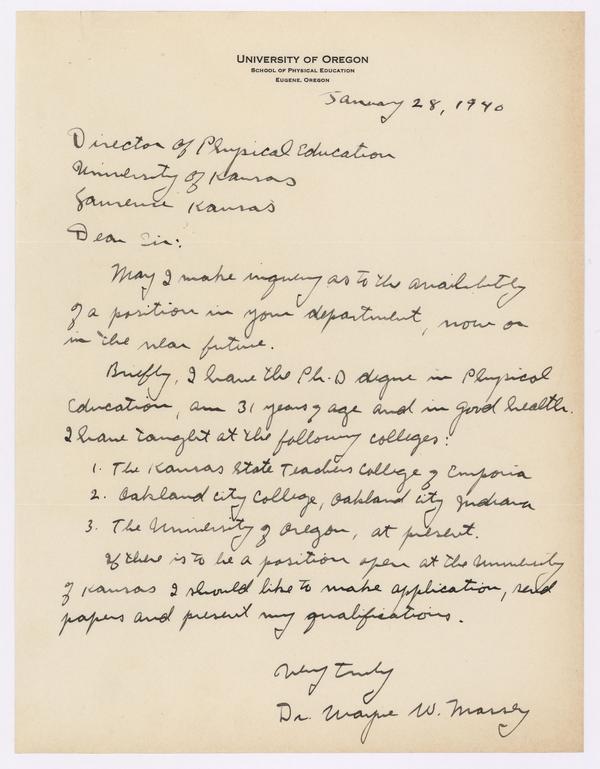 UNIVERSITY OF OREGON
SCHOOL OF PHYSICAL EDUCATION
EUGENE, OREGON
January 28, 1940
Director of Physical Education
University of Kansas
Lawrence Kansas
Dear Sir:
May I make inquiry as to the availability
of a position in your department, now or
in the near future.
Briefly, I have the Ph.D degree in Physical
Education, am 31 years of age and in good health.
I have taught at the following colleges:
1. The Kansas State Teachers College of Emporia
2. Oakland City College, Oakland City Indiana
3. The University of Oregon, at present.
If there is to be a position open at the University
of Kansas I should like to make application, send
papers and present my qualifications.
Very truly
Dr. Wayne W. Massey